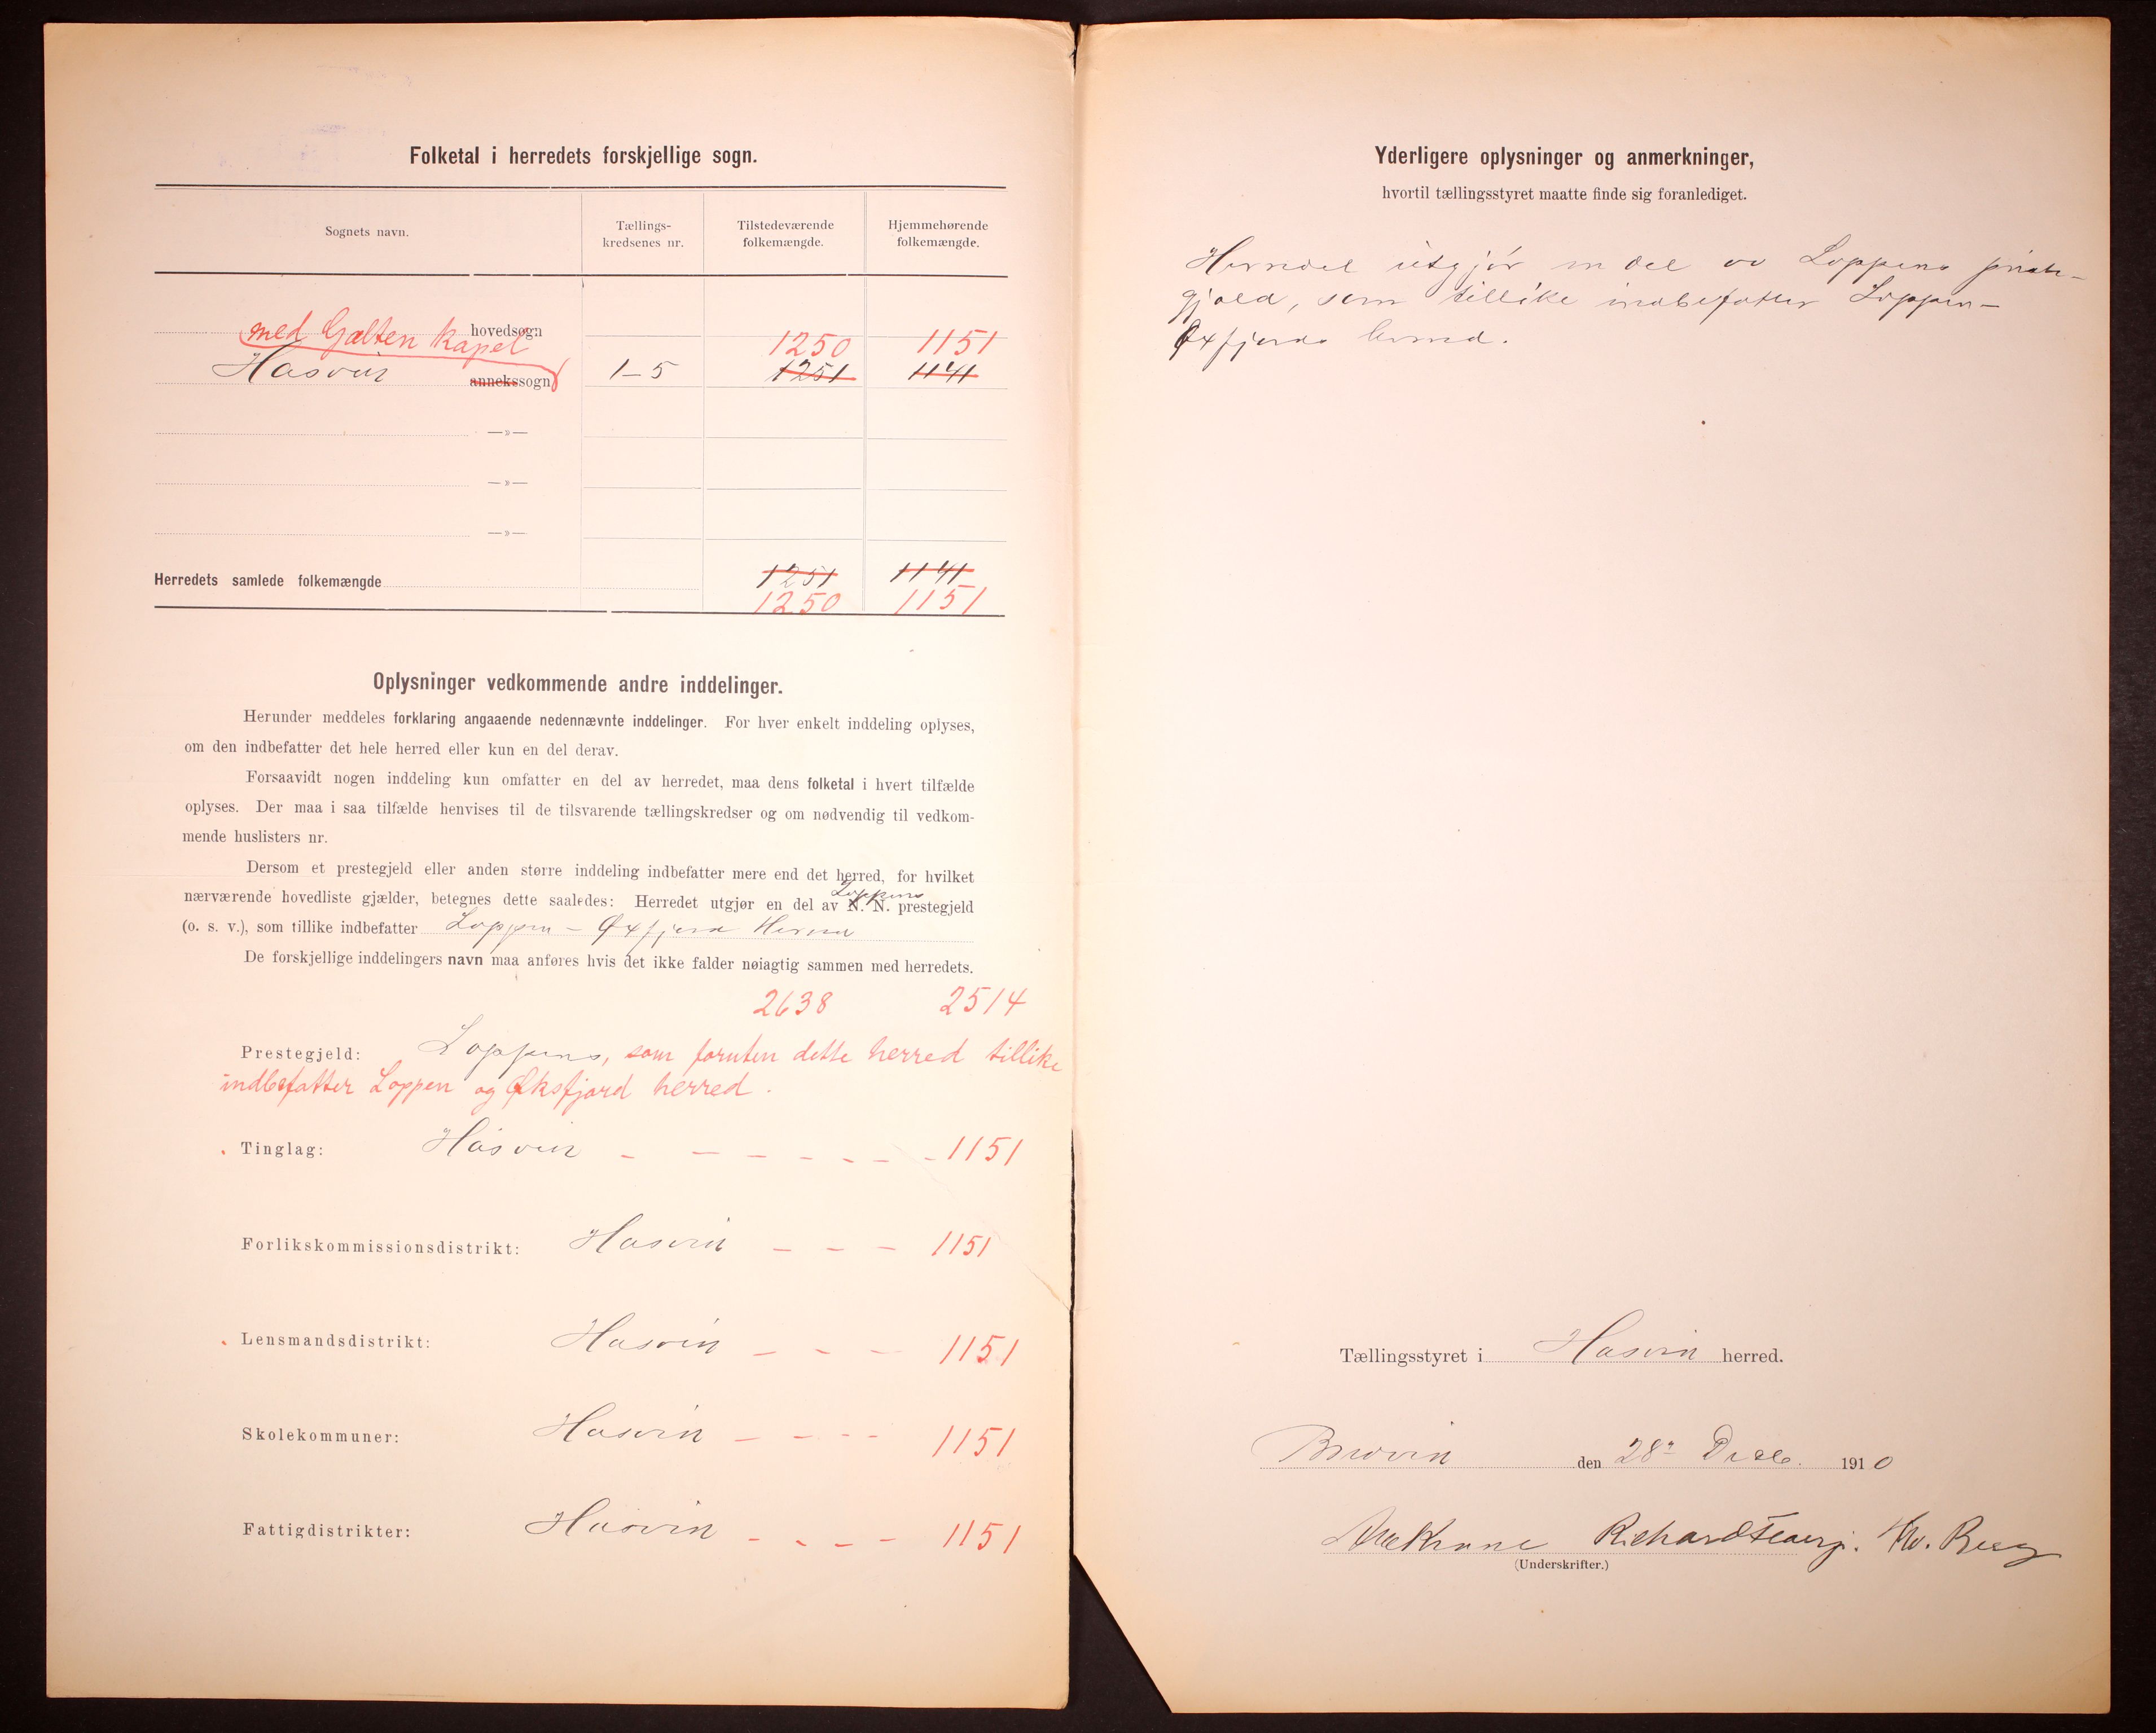 Folketal i herredets forskjellige sogn.
Sognets navn.
Tællings-
kredsenes nr.
Tilstedeværende
folkemængde.
Hjemmehørende
folkemængde.
hovedsogn
med Galten Kapel
1250 1151
Hasvik annekssogn 1-5 1251 1141
—»—
—»—
—»—
Herredets samlede folkemængde 1251 1141
1250 1151
Oplysninger vedkommende andre inddelinger.
Herunder meddeles forklaring angaaende nedennævnte inddelinger. For hver enkelt inddeling oplyses,
om den indbefatter det hele herred eller kun en del derav.
Forsaavidt nogen inddeling kun omfatter en del av herredet, maa dens folketal i hvert tilfælde
oplyses. Der maa i saa tilfælde henvises til de tilsvarende tællingskredser og om nødvendig til vedkom-
mende huslisters nr.
Dersom et prestegjeld eller anden større inddeling indbefatter mere end det herred, for hvilket
Loppens
nærværende hovedliste gjælder, betegnes dette saaledes: Herredet utgjør en del av N. N. prestegjeld
(o. s. v.), som tillike indbefatter Loppen - Øxfjord Herred
De forskjellige inddelingers navn maa anføres hvis det ikke falder nøiagtig sammen med herredets.
2638 2514
Prestegjeld: Loppens, som foruten dette herred tillike
indbefatter Loppen og Øksfjord herred.
Tinglag: Hasvik - - - - - - - 1151
Forlikskommissionsdistrikt: Hasvik - - - 1151
Lensmandsdistrikt: Hasvik - - - 1151
Skolekommuner: Hasvik - - - - 1151
Fattigdistrikter: Hasvik - - - - 1151
Yderligere oplysninger og anmerkninger,
hvortil tællingsstyret maatte finde sig foranlediget.
Herredet utgjør en del av Loppens preste-
gjeld, som tillike indbefatter Loppen-
Øxfjords herred.
Tællingsstyret i Hasvik herred.
den 28de Decb. 1910
Richard Fleang. Berg
(Underskrifter.)